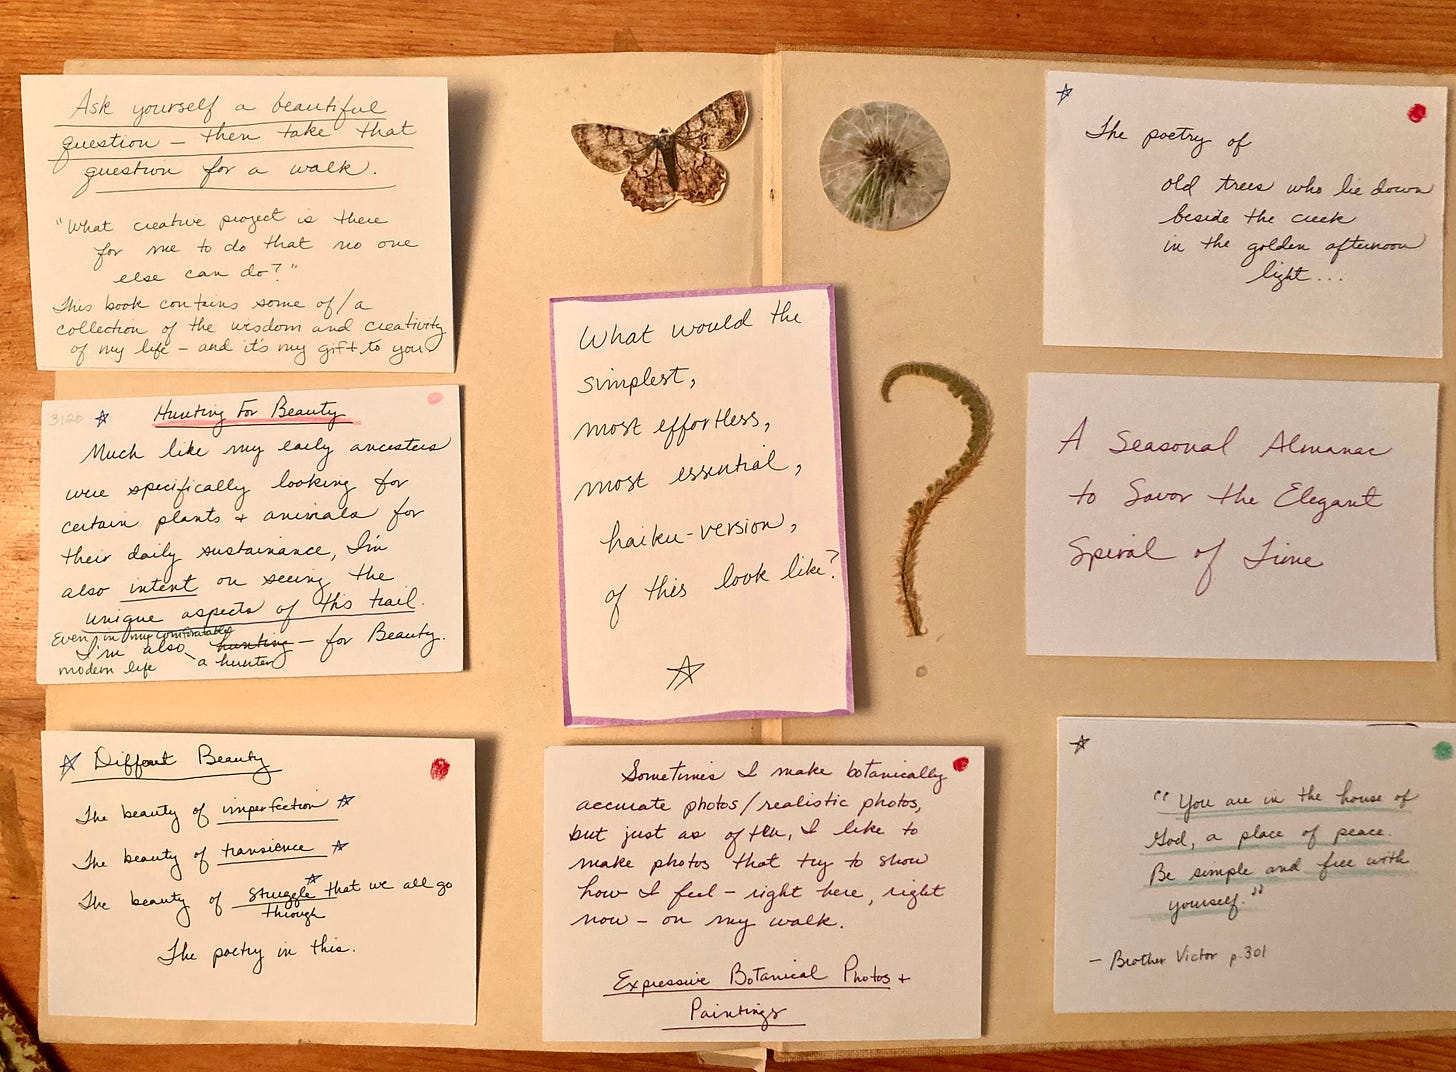 Ask yourself a beautiful
question – then take that
question for a walk.
"What creative project is there
for me to do that no one
else can do?"
This book contains some of/a
collection of the wisdom and creativity
of my life – and it's my gift to you.
3120
Hunting For Beauty
Much like my early ancestors
were specifically looking for
certain plants + animals for
their daily sustainance, I'm
also intent on seeing the
unique aspects of this trail.
Even in my comfortable
modern life
I'm also hunting – for Beauty.
a hunter
Different Beauty
The beauty of imperfection
The beauty of transience
The beauty of struggle that we all go
through
The poetry in this.
What would the
simplest,
most effortless,
most essential,
haiku-version,
of this look like?
Sometimes I make botanically
accurate photos/realistic photos,
but just as often, I like to
make photos that try to show
how I feel – right here, right
now – on my walk.
Expressive Botanical Photos +
Paintings
The poetry of
old trees who lie down
beside the creek
in the golden afternoon
light...
A Seasonal Almanac
to Savor the Elegant
Spiral of Time
"You are in the house of
God, a place of peace.
Be simple and free with
yourself."
– Brother Victor p.301